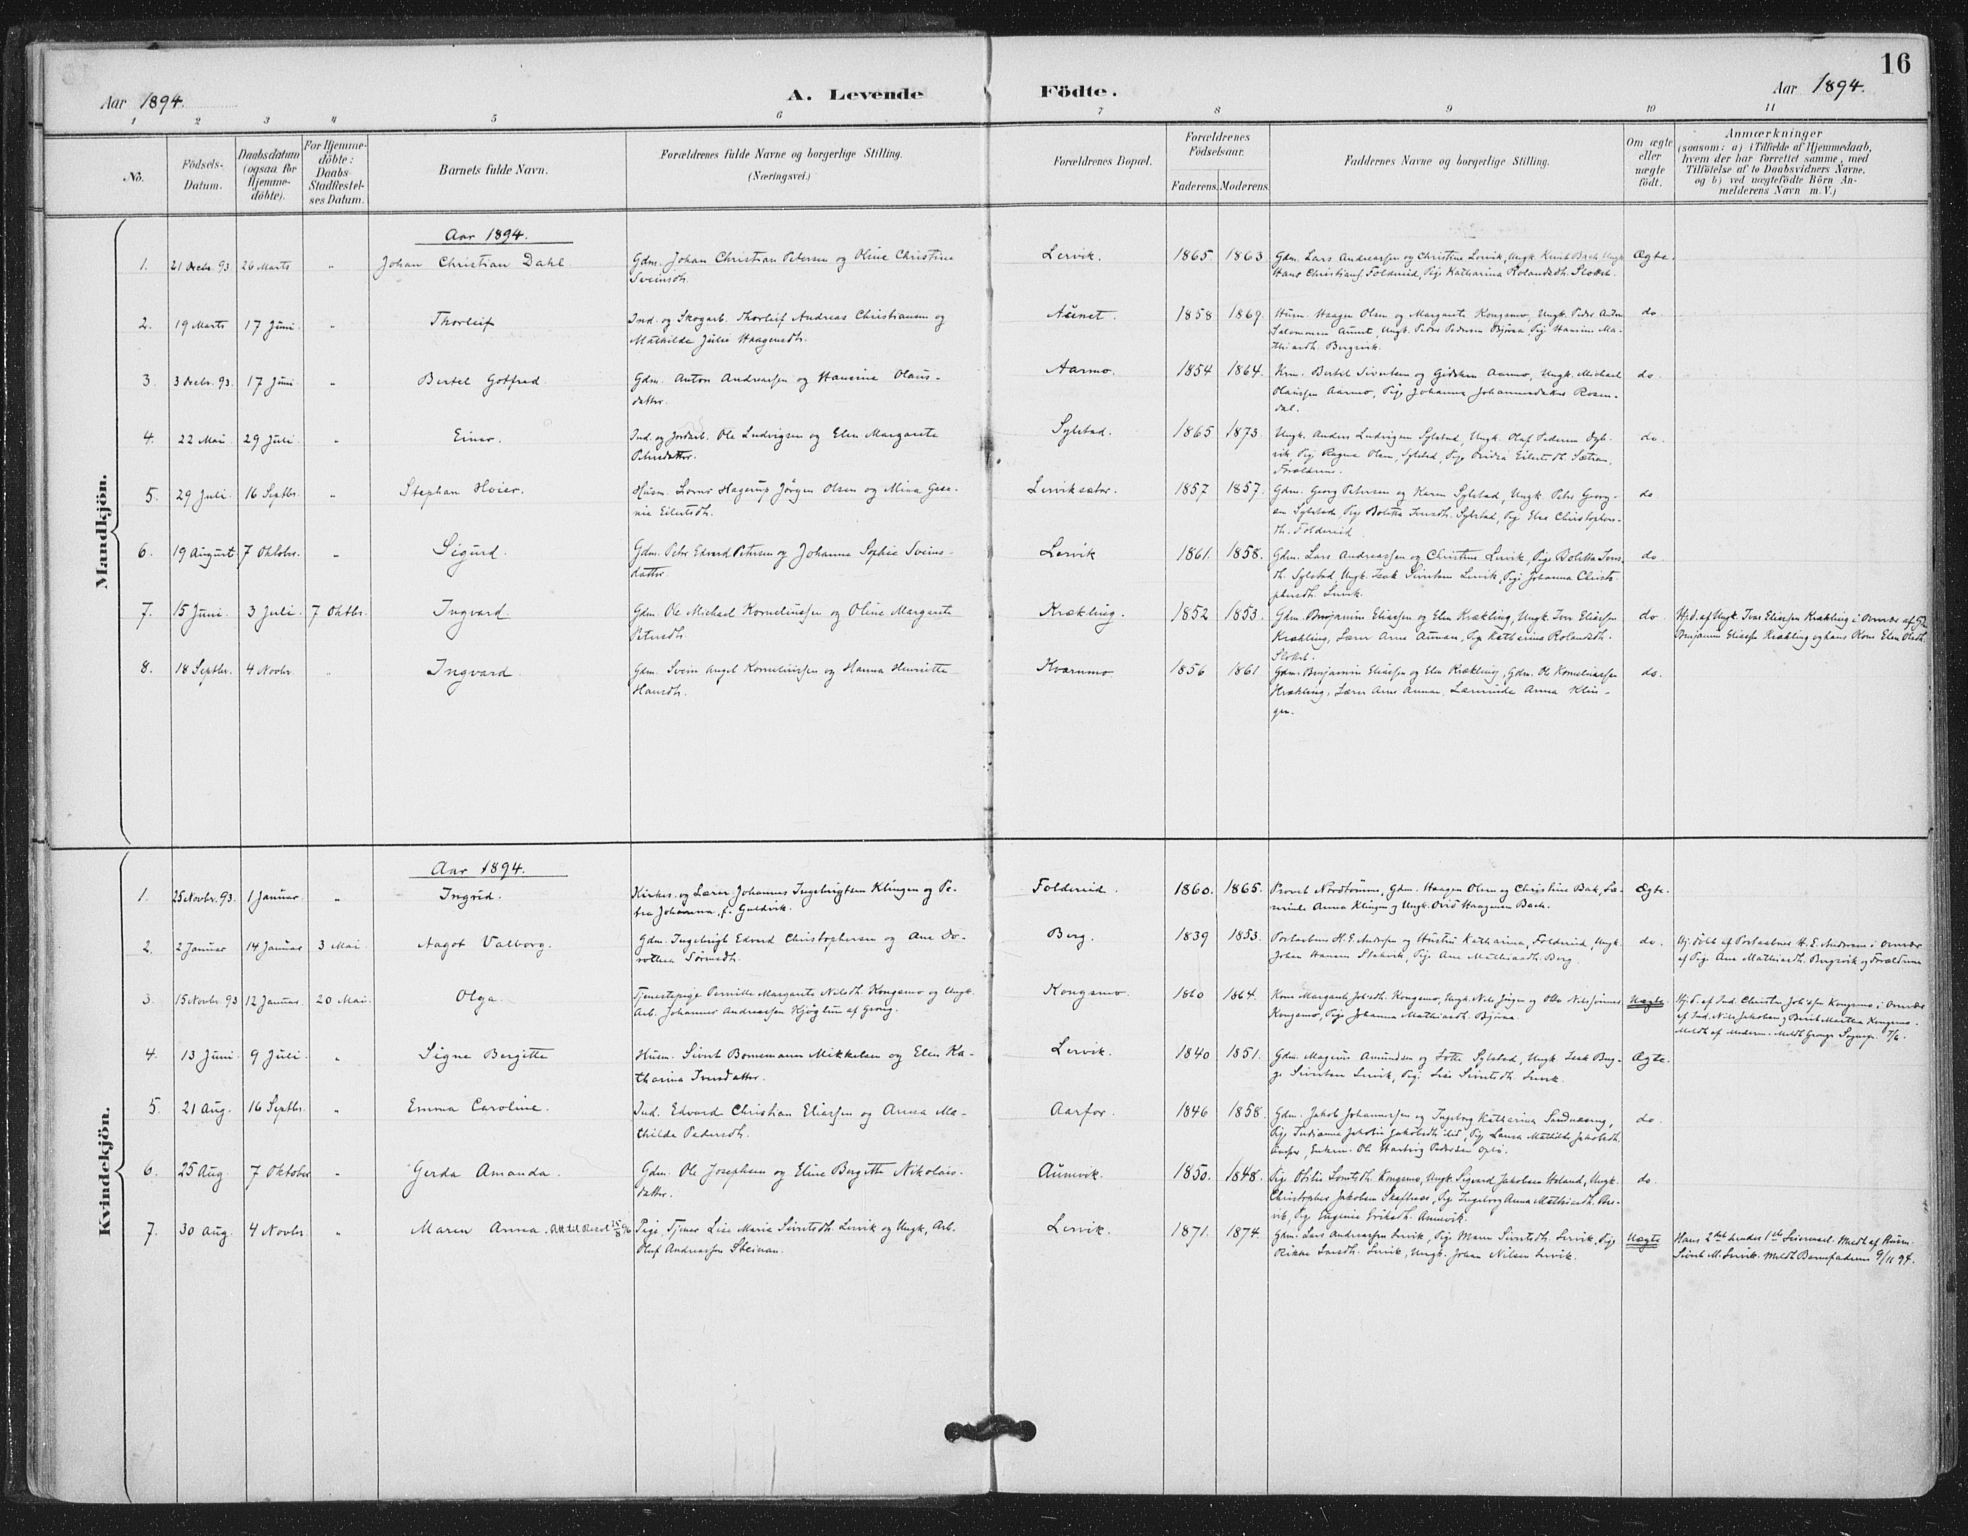 16
Aar 1894.
A. Levende Födte.
Aar 1894.
1 2 3 4 5 6 7 8 9 10 11
No.
Födsels-
Datum.
Daabsdatum
(ogsaa for
Hjemme-
döbte).
For Hjemme-
döbte:
Daabs-
Stadfæstel-
ses Datum.
Barnets fulde Navn.
Forældrenes fulde Navne og borgerlige Stilling.
(Næringsvei.)
Forældrenes Bopæl.
Forældrenes
Födselsaar.
Faderens. Moderens.
Faddernes Navne og borgerlige Stilling.
Om ægte
eller
uægte
födt.
Anmærkninger
(saasom: a) i Tilfælde af Hjemmedaab,
hvem der har forrettet samme, med
Tilföielse af to Daabsvidners Navne,
og b) ved uægtefödte Börn An-
melderens Navn m. V.)
Mandkjön.
Aar 1894.
1. 21 Decbr. 93 26 Marts " Johan Christian Dahl. Gdm. Johan Christian Petersen og Oline Christine
Sveinsdtr.
Lervik. 1865 1863 Gdm. Lars Andreassen og Christine Lervik, Ungk. Knut Bach, Ungk.
Hans Christians. Foldereid, Pige Katharina Rolandsdtr. Ægte.
2. 19 Marts 17 Juni " Thorleif Ind. og Skogarb. Thorleif Andreas Christiansen og
Mathilde Julie Haagensdtr.
Aunet. 1858 1869. Husm. Haagen Olsen og Margarete Kongsmo, Ungk. Peder Anton
Salomonsen Aunet, Ungk. Peder Pedersen Björaa, Pig. Hansine Ma-
thiasdtr. Bergsvik. do.
3. 3 Decbr. 93. 17 Juni " Bertel Gotfred Gdm. Anton Andreassen og Hansine Olaus-
datter.
Aarmo. 1854 1864. Krm. Bertel Sivertsen og Gidsken Aarmo, Ungk. Michael
Olaussen Aarmo, Pig. Johanna Johannesdatter Rosen-
dal. do.
4. 22 Mai 29 Juli " Einar. Ind. og Jordarb. Ole Ludvigsen og Elen Margarete
Petersdatter.
Sylstad. 1865 1873. Ungk. Anders Ludvigsen Sylstad, Ungk. Olaf Pedersen
vik, Pig Ragna Olsen, Sylstad, Pige Ovidia Eilertsdtr. Sætran,
Forældrene. do.
5. 29 Juli. 16 Septbr. " Stephan Hoier. Husm. Hagerup Jörgen Olsen og Mina Gese-
nie Eilertsdtr.
Lerviksæter. 1857 1857. Gdm. Georg Petersen og Karen Sylstad, Ungk. Peter Georg-
sen Sylstad, Pige Boletta Iversdtr. Sylstad, Pig. Else Christophers-
dtr. Foldereid do
6. 19 August 7 Oktobr. " Sigurd. Gdm. Peter Edvard Petersen og Johanna Sophie Sveins-
datter.
Lervik 1861. 1858. Gdm. Lars Andreassen og Christine Lervik, Pige Boletta Ivers-
dtr. Sylstad, Ungk. Isak Sivertsen Lervik, Pige Johanna Christo-
phersdtr. Lervik. do.
7. 15 Juni. 3 Juli. 7 Oktbr. Ingvard Gdm. Ole Michael Korneliussen og Oline Margarete
Petersdtr.
Krækling. 1852 1853. Gdm. Benjamin Eliassen og Elen Krækling, Ungk. Iver Eliassen
Krækling, Lærer Arne Aunan, Pig Katharina Rolandsdtr. do. Hjd. af Ungk. Iver Eliassen Krækling i Overvær af
Benjamin Eliassen Krækling og hans Kone Elen Olsdtr.
8. 18 Septbr. 4 Novbr. " Ingvard. Gdm. Svein Angel Korneliussen og Hanna Henriette
Hansdtr.
Kvarmmo 1856 1861 Gdm. Benjamin Eliassen og Elen Krækling, Gdm. Ole Korneliussen
Krækling, Lærer Arne Aunan, Lærerinde Anna Klin-
gen. do.
Kvindekjön.
Aar 1894.
1. 25 Novbr. 93. 1 Januar " Ingrid. Kirkes. og Lærer Johannes Ingebrigtsen Klingen og Pe-
tra Johanna, f. Guldvik.
Foldereid. 1860. 1865. Provst Nordtömme, Gdm. Haagen Olsen og Christine Bach, Læ-
rerinde Anna Klingen og Ungk. Ovid Haagensen Bach. Ægte.
2. 2 Januar 14 Januar 3 Mai. Aagot Valborg. Gdm. Ingebrigt Edvard Christophersen og Ane Do-
rothea Sörensdtr.
Berg. 1839 1853. Postaabner H. E. Andersen og Hustru Katharina, Foldereid, Ungk.
Johan Hansen, Pige Ane Mathiasdtr. Berg. do. Hj.döbt af Postaabner H. E. Andersen i Overvær
af Pige Ane Mathiasdtr. Bergsvik og Forældrene
3. 15 Novbr. 93 12 Januar 20 Mai. Olga. Tjenestepige Pernille Margarete Nilsdtr. Kongsmo og Ungk.
Arb. Johannes Andreassen Kjögtun af Grong.
Kongsmo. 1860 1864. Kone Margarete Jakobsdtr. Kongsmo, Ungk. Nils Jörgen og Ole Nilssönner
Kongsmo, Pige Johanna Mathiasdtr. Björaa. Uægte. Hj.d. af Ind. Christen Johnsen Kongsmo i Overvær
af Ind. Nils Jakobsen og Berit Martha Kongsmo.
Meldt af Moderen. Meldt Grongs Sogner. 7/6.
4. 13 Juni 9 Juli. " Signe Bergitte Husm. Sivert Bornemann Mikkelsen og Elen Ka-
tharina Iversdatter.
Lervik. 1840 1851. Gdm. Magnus Amundsen og Lotte Sylstad, Ungk. Isak Byg-
ge Sivertsen Lervik, Pige Lise Sivertsdtr. Lervik. Ægte.
5. 21 Aug. 16 Septbr. " Emma Caroline. Ind. Edvard Christian Eliassen og Anna Ma-
thilde Pedersdtr.
Aarfor. 1846 1858. Gdm. Jakob Johannessen og Ingeborg Katharina Sandnæseng,
Pige Indianna Jakobie Jakobsdtr. ibid, Pig Laura Mathilde Jakobsdtr.
Aarfor, Enkem. Ole Hartvig Pedersen Oplö. do.
6. 25 Aug 7 Oktober " Gerda Amanda. Gdm. Ole Josephsen og Eline Bergitte Nikolais-
datter.
Aunvik. 1850. 1848. Pige Otilie Kongsmo, Ungk. Sigvard Jakobsen Höland, Ungk.
Christopher Jakobsen, Pige Ingeborg Anna Mathiasdtr. Ber-
vik, Pige Eugenie Eriksdtr. Aunevik. do.
7. 30 Aug. 4 Novbr. " Maren Anna. Att. til Reise 15/8 96 Pige, Tjener Lise Marie Sivertsdtr. Lervik og Ungk., Arb.
Oluf Andreassen Steinan.
Lervik. 1871. 1874. Gdm. Lars Andreassen Lervik, Pige Maren Sivertsdtr. Lervik, Pige
Rikke Larsdtr. Lervik, Ungk. Johan Nilsen Lervik. Uægte Hans 2det hendes 1ste Leiermaal. Meldt af Husm.
Sivert M. Lervik. Meldt Barnefaderen 9/11 94.